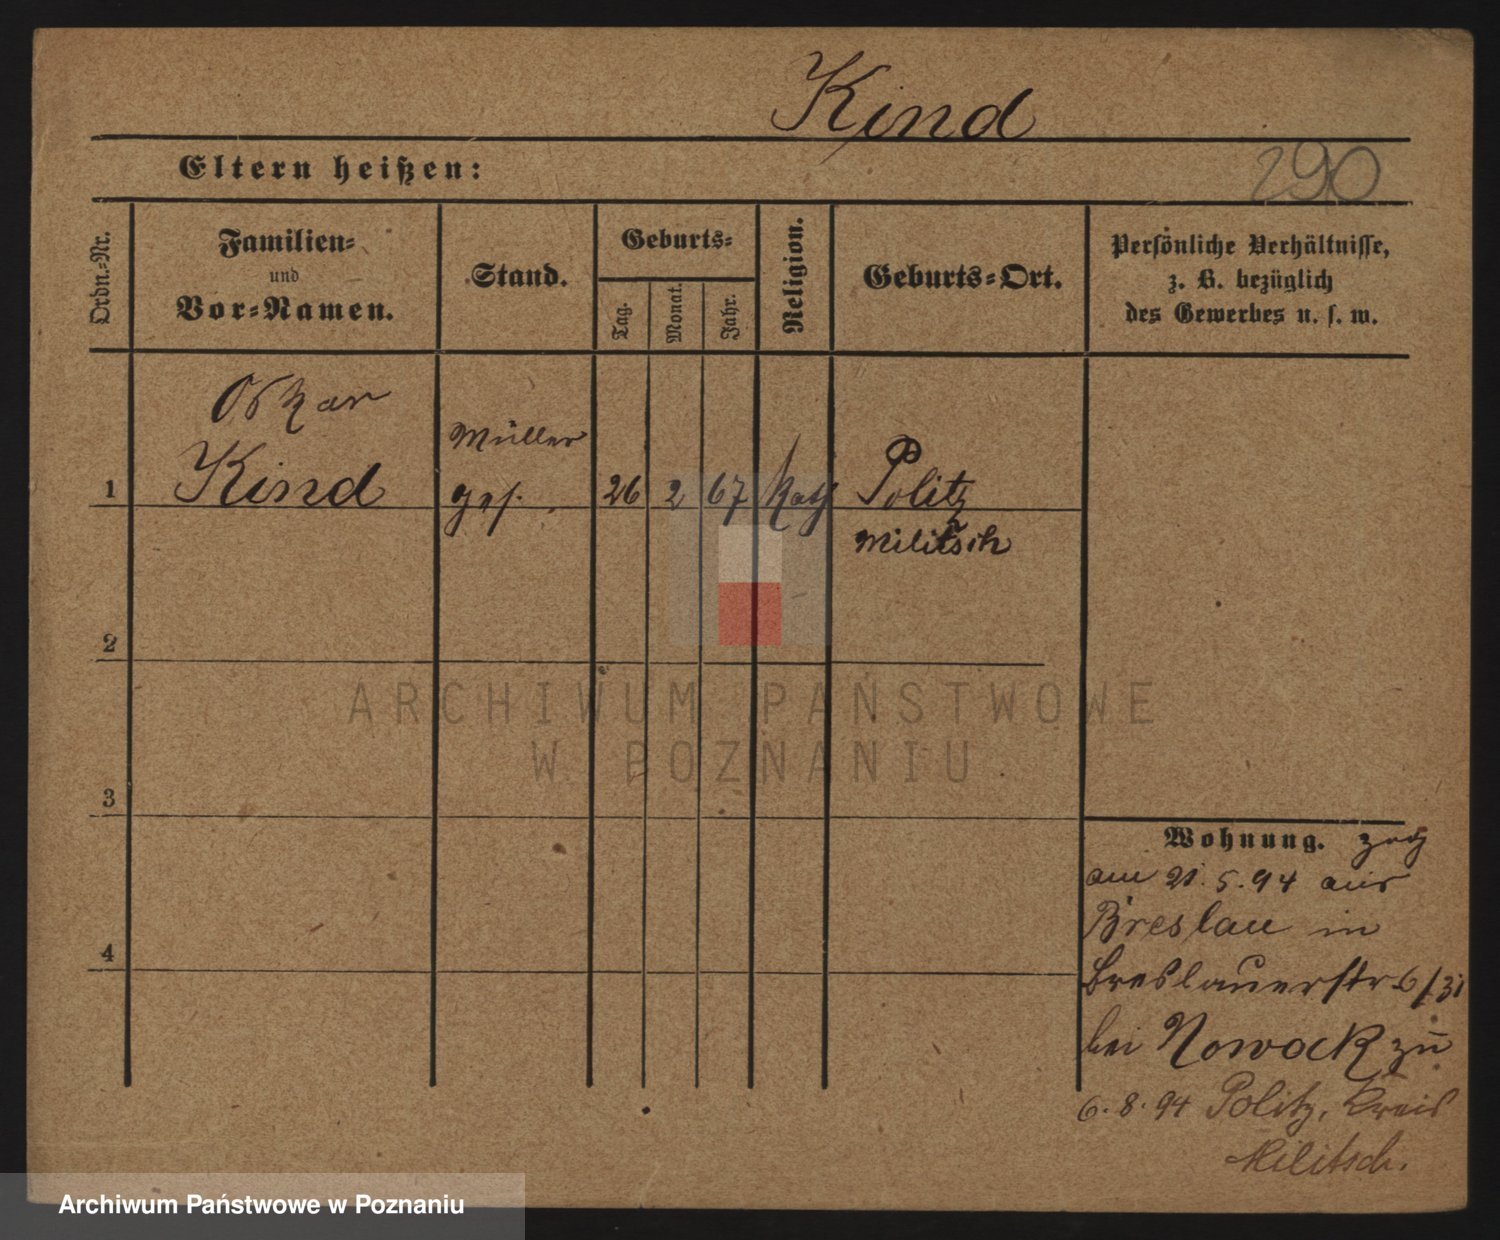 Kind
Eltern heißen:
290
Ordn.-Nr.
Familien-
und
Vor-Namen.
Stand.
Geburts-
Tag.
Monat.
Jahr.
Religion.
Geburts-Ort.
Persönliche Verhältnisse,
z. B. bezüglich
des Gewerbes u. s. w.
Oskar
Müller
1 Kind ges. 26 2 67 Kath Politz
Militsch
2
3
4
Wohnung. zog
am 21.5.94 aus
Breslau in
Breslauerstr 6/31
bei Nowack zu
6.8.94 Politz, Kreis
Militsch.
ARCHIWUM PAŃSTWOWE
W POZNANIU
Archiwum Państwowe w Poznaniu